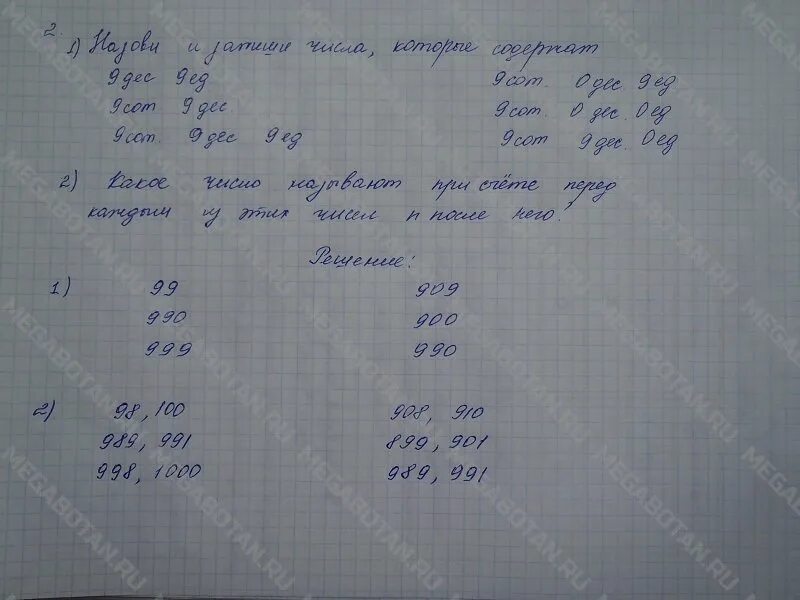 2.
1) Назови и запиши числа, которые содержат
9 дес 9 ед 9 сот. 0 дес. 9 ед
9 сот 9 дес. 9 сот. 0 дес. 0 ед
9 сот. 9 дес 9 ед 9 сот 9 дес. 0 ед
2) Какое число называют при счёте перед
каждым из этих чисел и после него?
Решение:
1) 99 909
990 900
999 990
2) 98, 100 908, 910
989, 991 899, 901
998, 1000 989, 991
MEGABOTAN.RU